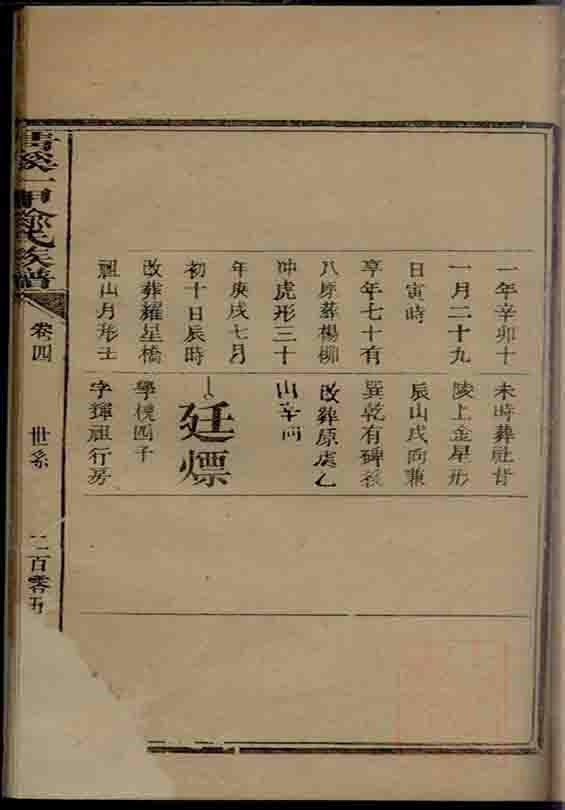 一年辛卯十
一月二十九
日寅時
享年七十有
八原葬楊柳
冲虎形三十
年庚戌七月
初十日辰時
改葬耀星橋
祖山月形土
未時葬社背
陵上金星形
辰山戌向兼
巽乾有碑後
改葬原處乙
山辛向
廷熛
學樸四子
字輝祖行房
一甲
氏族譜
卷四
世系
二百零五